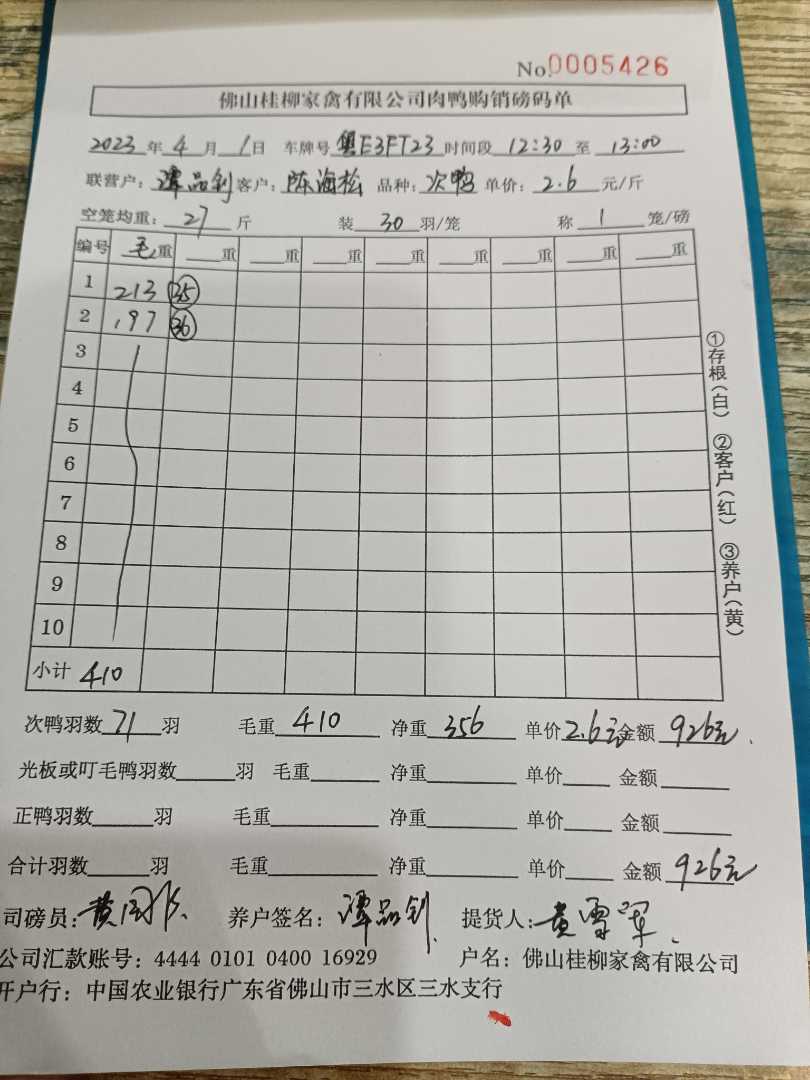 No.0005426
佛山桂柳家禽有限公司肉鸭购销磅码单
2023年4月1日 车牌号粤E3FT23时间段12:30至13:00
联营户:谭品钊客户:陈海松 品种:次鸭 单价:2.6元/斤
空笼均重:27斤 装30羽/笼 称1笼/磅
编号 毛重 重 重 重 重 重 重 重 重
1 213 35
2 197 36
3
4
5
6
7
8
9
10
小计 410
①存根(白) ②客户(红) ③养户(黄)
次鸭羽数71羽 毛重410 净重356 单价2.6元金额926元
光板或叮毛鸭羽数 羽 毛重 净重 单价 金额
正鸭羽数 羽 毛重 净重 单价 金额
合计羽数 羽 毛重 净重 单价 金额926元
司磅员:黄 养户签名:谭品钊 提货人:黄雪军
公司汇款账号:4444 0101 0400 16929 户名:佛山桂柳家禽有限公司
开户行:中国农业银行广东省佛山市三水区三水支行